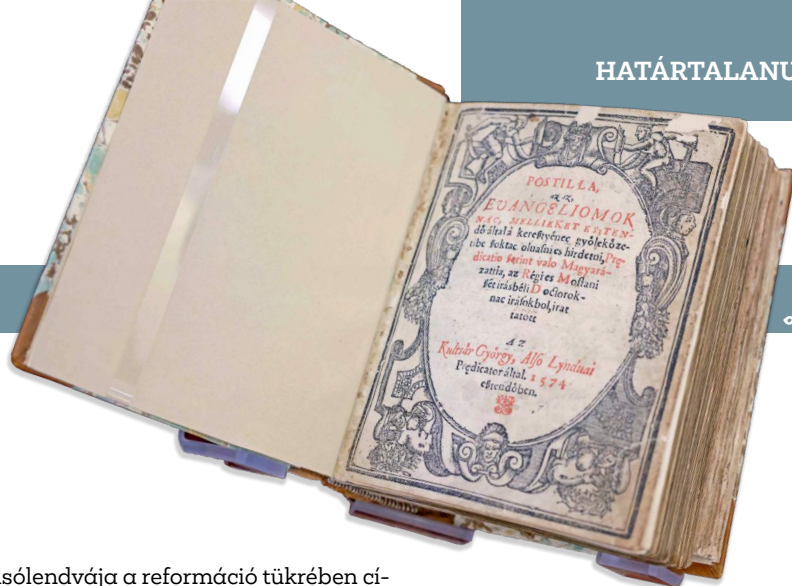 HATÁRTALANU
POSTILLA,
az az,
EVANGELIOMOK
NAC, MELLIEKET ESZTEN-
dö által à keresztyénec gyölekőze-
tibe szoktac oluasni es hirdetni, Pre-
dicatio szerint valo Magyará-
zattia, az Régi es Mostani
szét irásbéli Doctorok-
nac irásokbol, irat
tatott
AZ
Kultsár György, Also Lynduai
Predicator által. 1574
esztendöben.
sólendvája a reformáció tükrében cí-